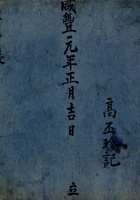 咸豐元年正月吉日 立
高丕珍記